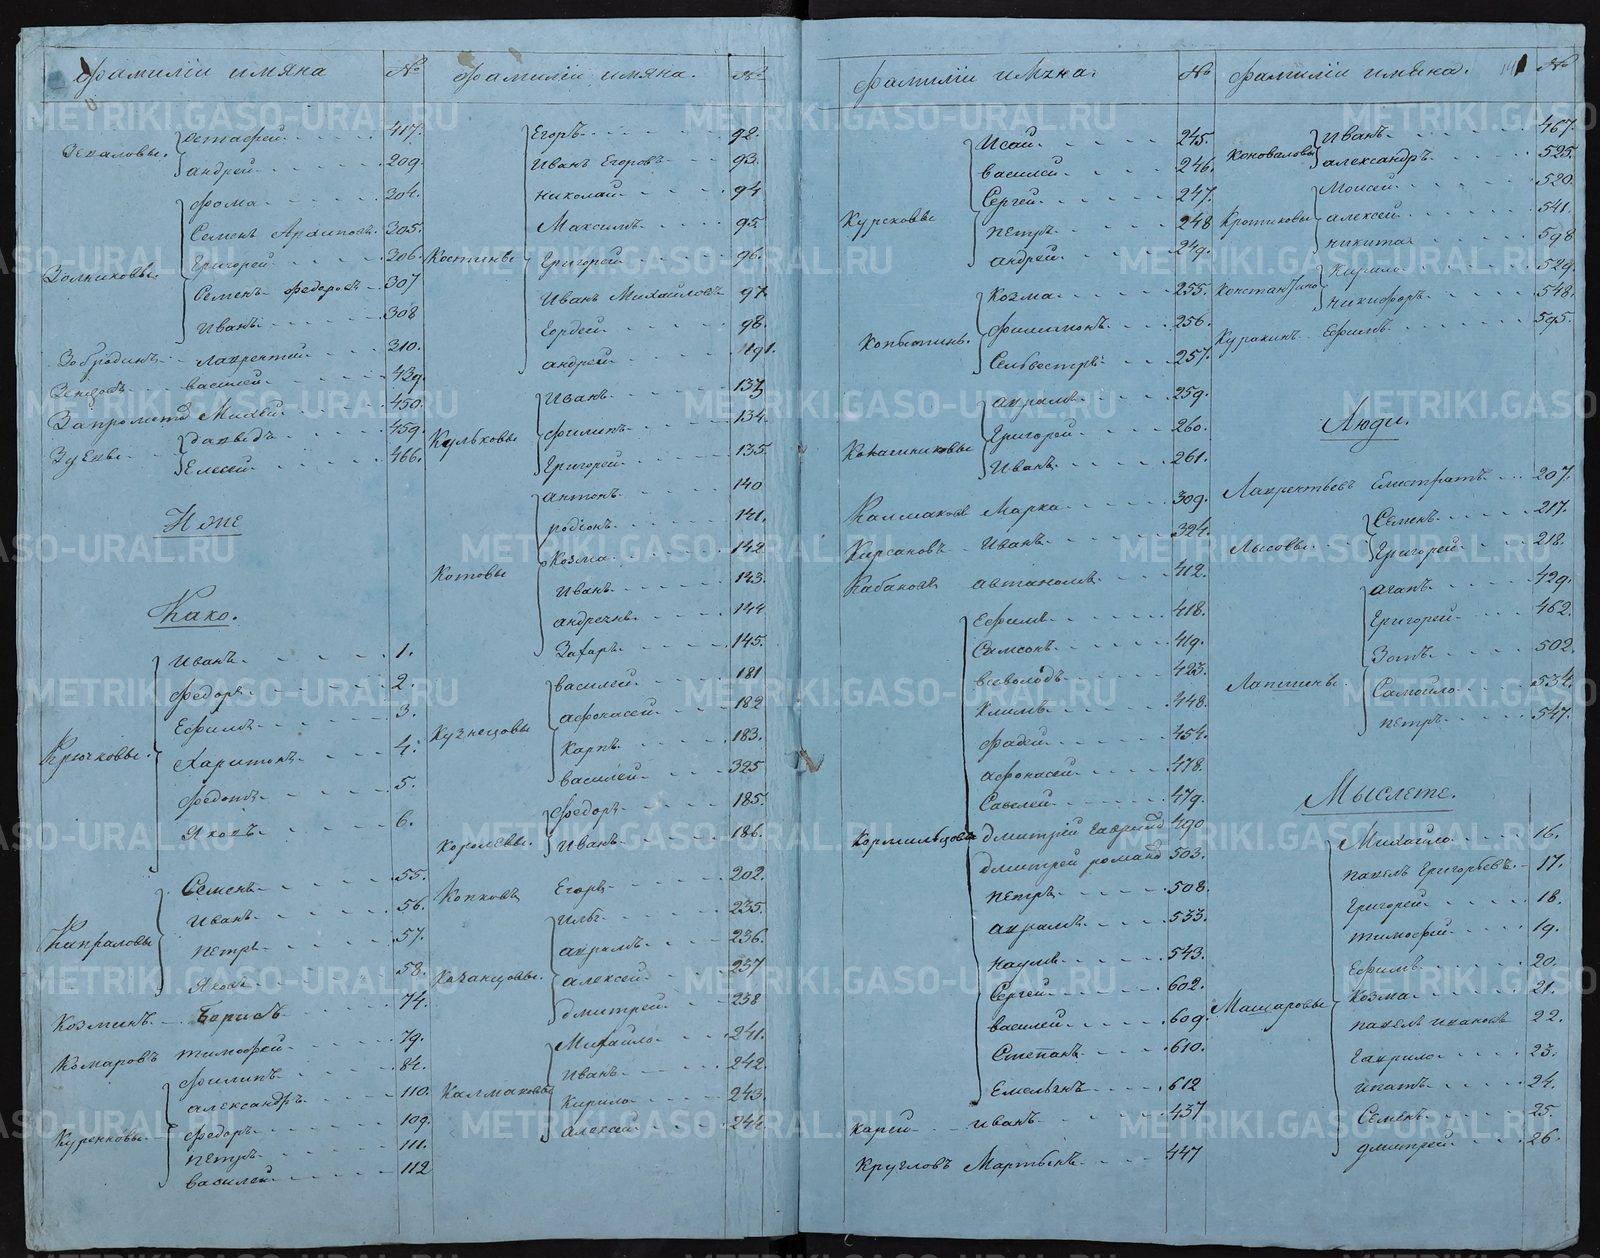 Фамиліи имяна №
Зеваловы. Остафей 417.
Андрей 209.
Фома 304.
Семенъ Архиповъ 305.
Золниковы Григорей 306.
Семенъ Федоровъ 307
Иванъ 308
Забродинъ Лаврентей 310.
Зенцовъ Василей 439.
Запрометовъ Михей 450.
Зуевы Давыдъ 459.
Елисей 466.
Иже
Како.
Иванъ 1.
Федоръ 2.
Ефимъ 3.
Крючковы. Харитонъ 4.
Федотъ 5.
Яковъ 6.
Семенъ 55.
Иванъ 56.
Капраловы Петръ 57.
Яковъ 58.
Козминъ Борисъ 74.
Комаровъ Тимофей 79.
Филипъ 84.
Александръ 110.
Куренковы Федоръ 109.
Петръ 111.
Василей 112
Фамиліи имяна. №
Егоръ 92.
Иванъ Егоровъ 93.
Николай 94
Максимъ 95.
Костины Григорей 96.
Иванъ Михайловъ 97.
Гордей 98.
Андрей 491.
Иванъ 133
Кульковы Филипъ 134.
Григорей 135.
Антонъ 140
Родіонъ 141.
Козма 142
Котовы Иванъ 143.
Андреянъ 144
Захаръ 145.
Василей 181
Афонасей 182
Кузнецовы Карпъ 183.
Василей 325
Федоръ 185.
Королевы. Иванъ 186.
Копковъ Егоръ 202.
Илья 235.
Аврамъ 236.
Казанцовы. Алексей 237
Дмитрей 238
Михайло 241.
Иванъ 242.
Калмаковы Кирило 243.
Алексей 244.
Фамиліи имяна. №
Исай 245.
Василей 246.
Сергей 247.
Курсковы Петръ 248
Андрей 249.
Козма 255.
Копытины. Филимонъ 256.
Селивестръ 257.
Аврамъ 259.
Григорей 260.
Кокашниковы Иванъ 261.
Калмаковъ Марка 309.
Кирсановъ Иванъ 324.
Кабаковъ Автаномъ 412.
Ефимъ 418.
Самсонъ 419.
Всеволодъ 423.
Климъ 448.
Фадей 454.
Афонасей 478.
Савелей 479.
Кормильцовы Дмитрей Гаврилов 490
Дмитрей Романов 503.
Петръ 508.
Аврамъ 533.
Наумъ 543.
Сергей 602.
Василей 609.
Степанъ 610.
Емельянъ 612
Карей Иванъ 437
Кругловъ Мартынъ 447
Фамиліи имяна. №
Иванъ 467.
Коноваловы Александръ 525.
Моисей 520.
Кротиковы Алексей 541.
Никита 598
Кирило 529.
Константино Никифоръ 548.
Куракинъ Ефимъ 595.
Люди.
Лаврентьевъ Елистратъ 207.
Семенъ 217.
Лысовы Григорей 218.
Агапъ 429.
Григорей 462.
Зотъ 502.
Лаптины Самойло 534.
Петръ 547.
Мыслете.
Михайло 16.
Павелъ Григорьевъ 17.
Григорей 18.
Тимофей 19.
Ефимъ 20.
Козма 21.
Машаровы Павелъ Ивановъ 22.
Гаврило 23.
Ипатъ 24.
Семенъ 25.
Дмитрей 26.
METRIKI.GASO-URAL.RU